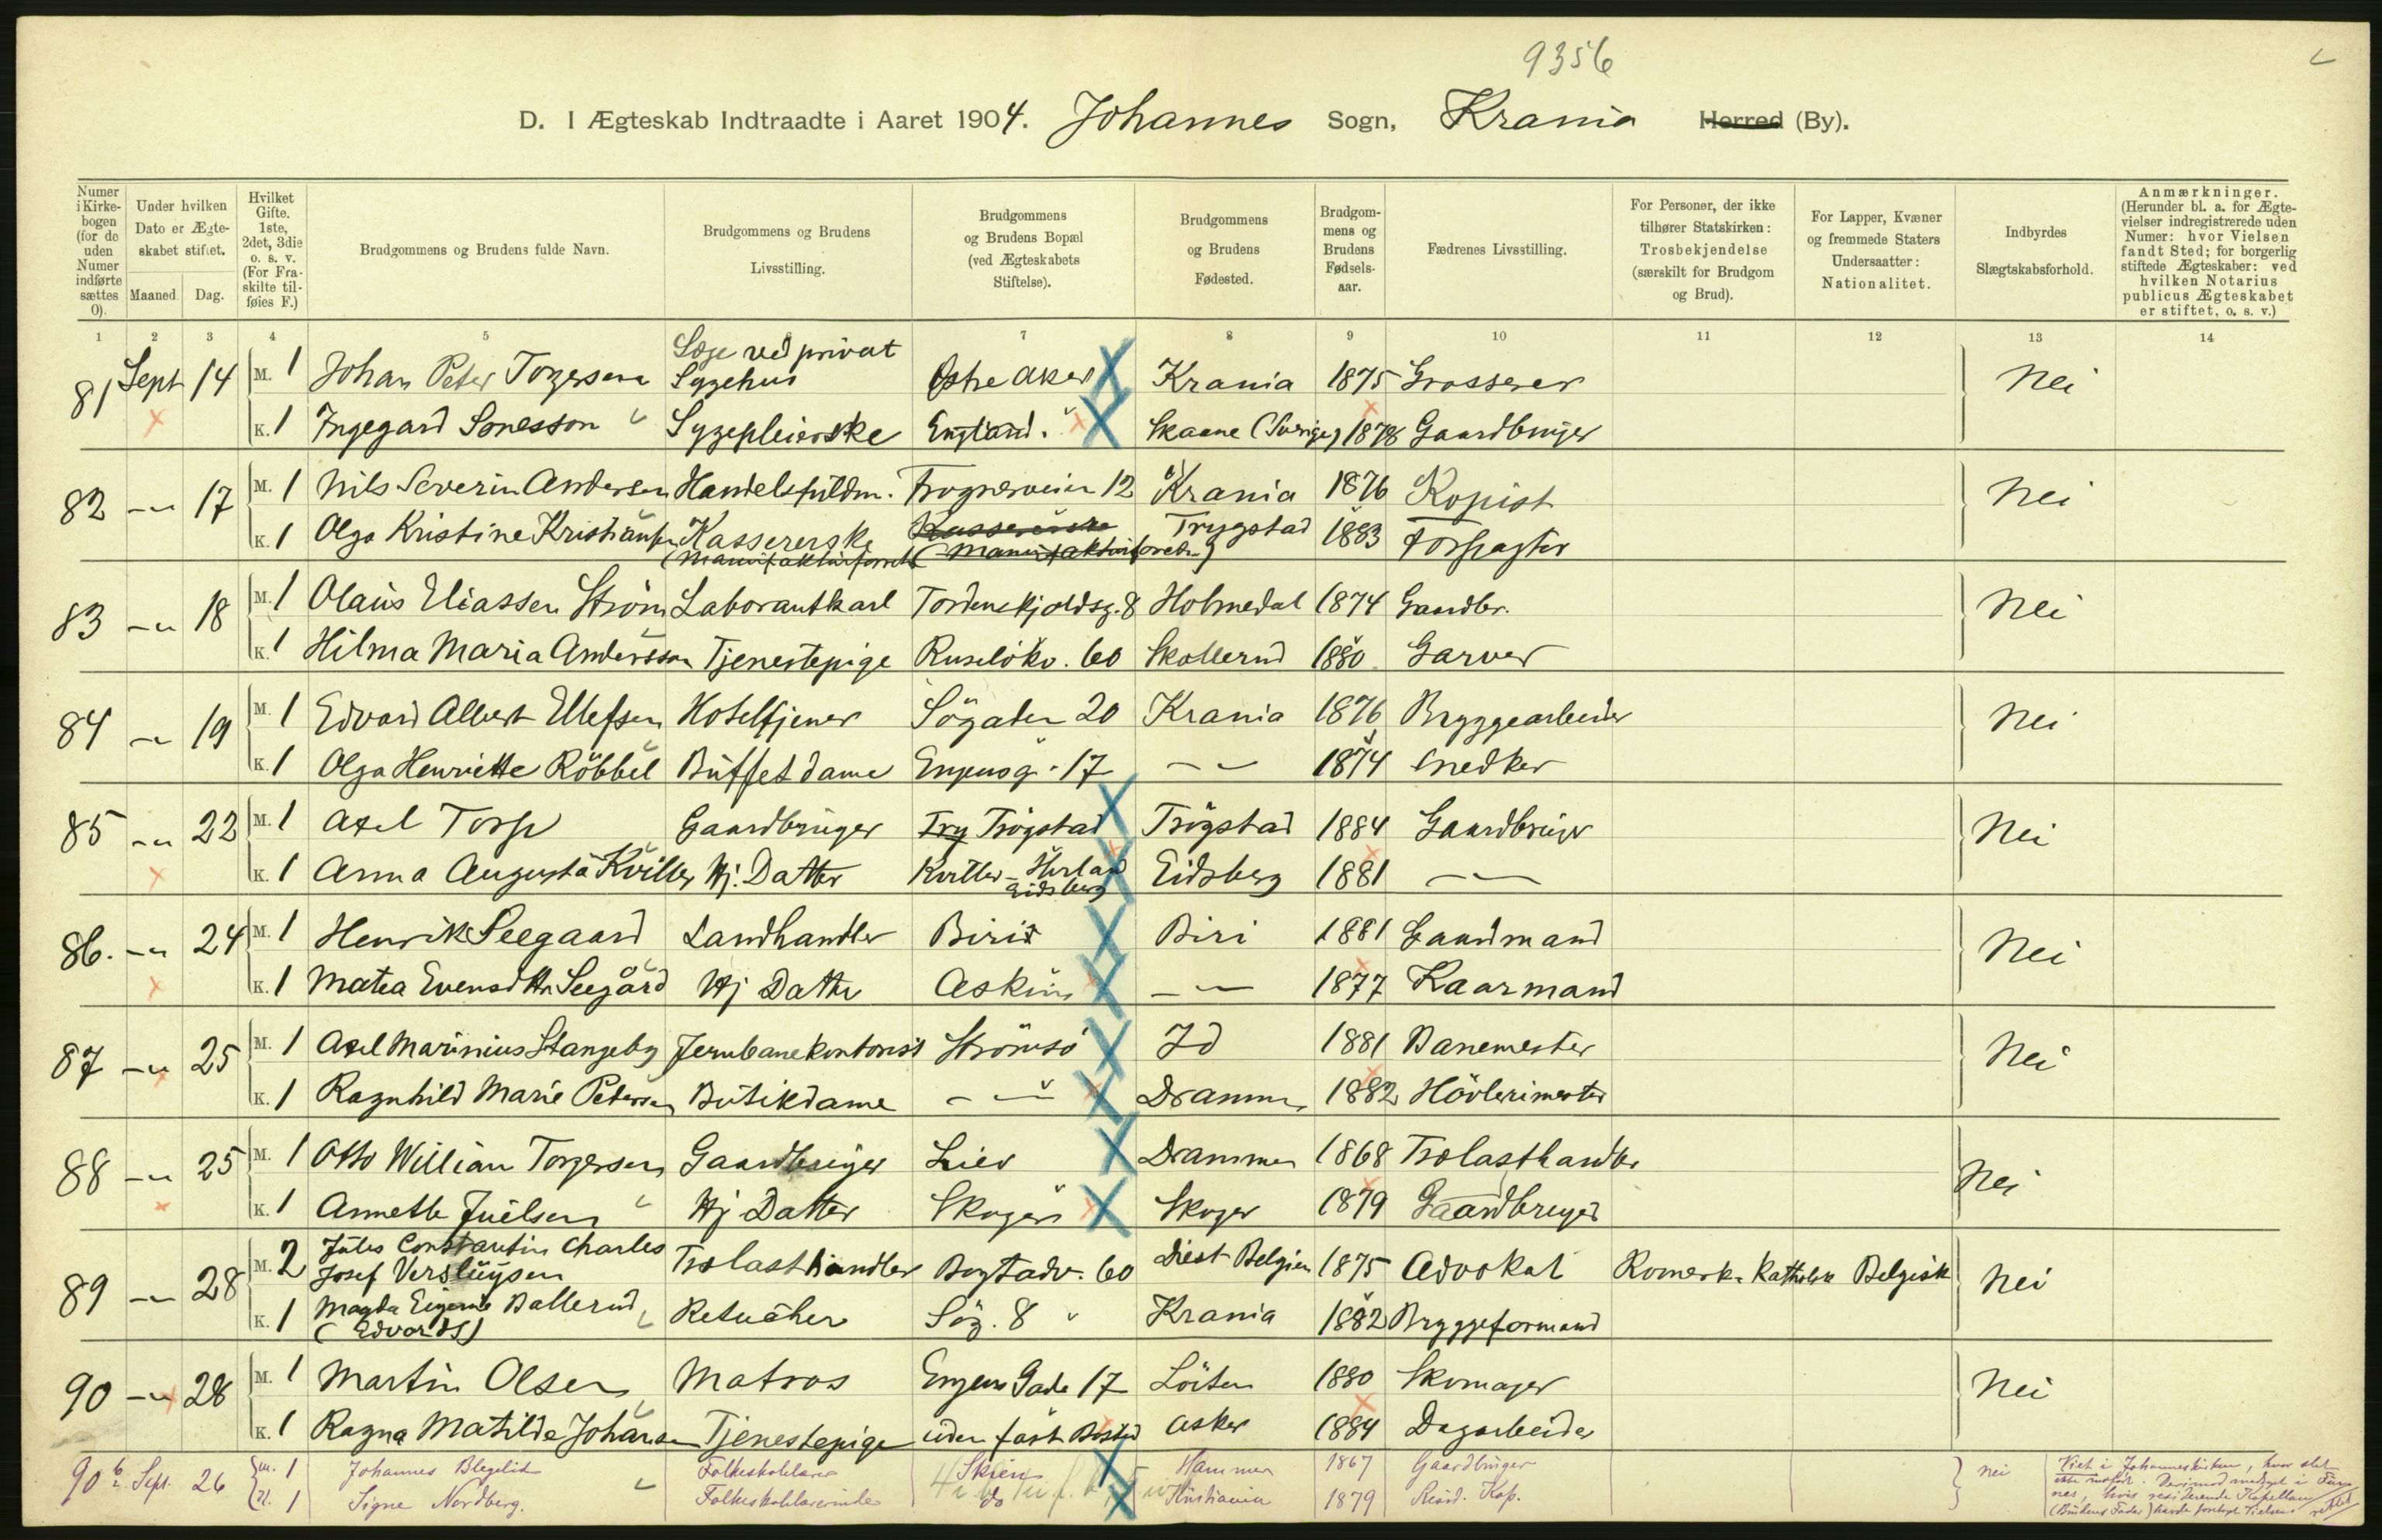 9356
D. I Ægteskab Indtraadte i Aaret 1904. Johannes Sogn, Krania Herred (By).
Numer i Kirkebogen (for de uden Numer indførte sættes 0).
Under hvilken Dato er Ægteskabet stiftet.
Maaned. Dag.
Hvilket Gifte. 1ste, 2det, 3die o. s. v. (For Fraskilte tilføies F.)
Brudgommens og Brudens fulde Navn.
Brudgommens og Brudens Livsstilling.
Brudgommens og Brudens Bopæl (ved Ægteskabets Stiftelse).
Brudgommens og Brudens Fødested.
Brudgommens og Brudens Fødselsaar.
Fædrenes Livsstilling.
For Personer, der ikke tilhører Statskirken: Trosbekjendelse (særskilt for Brudgom og Brud).
For Lapper, Kvæner og fremmede Staters Undersaatter: Nationalitet.
Indbyrdes Slægtskabsforhold.
Anmærkninger. (Herunder bl. a. for Ægtevielser indregistrerede uden Numer: hvor Vielsen fandt Sted; for borgerlig stiftede Ægteskaber: ved hvilken Notarius publicus Ægteskabet er stiftet, o. s. v.)
1 2 3 4 5 6 7 8 9 10 11 12 13 14
81 Sept 14 M. 1 Johan Peter Torgersen Læge ved privat Sygehus Østre Aker Krania 1875 Grosserer Nei
K. 1 Ingegard Sonesson Sygepleierske England. Skaane (Sverige) 1878 Gaardbruger
82 -"- 17 M. 1 Nils Severin Andersen Handelsfuldm. Frognerveien 12 Krania 1876 Kopist Nei
K. 1 Olga Kristine Kristiansen Kassererske (Manufakturforretn. Kassererske (Manufakturforretn.) Trygstad 1883 Forpagter
83 -"- 18 M. 1 Olaus Eliassen Strøm Laborantkarl Tordenskjoldsg. 8 Holmedal 1874 Gaardbr. Nei
K. 1 Hilma Maria Andersson Tjenestepige Ruseløkv. 60 Skollerud 1880 Garver
84 -"- 19 M. 1 Edvard Albert Ellefsen Hoteltjener Søgaten 20 Krania 1876 Bryggearbeider Nei
K. 1 Olga Henriette Röbbel Buffetdame Engensg. 17 -"- 1874 Snedker
85 -"- 22 M. 1 Axel Torp Gaardbruger Try Trøgstad Trøgstad 1884 Gaardbruger Nei
K. 1 Anna Augusta Kviller Hj. Datter Kviller - Herland Eidsberg Eidsberg 1881 -"-
86. -"- 24 M. 1 Henrik Seegaard Landhandler Biri Biri 1881 Gaardmand Nei
K. 1 Matea Evensdttr Seegård Hj Datter Askim -"- 1877 Kaarmand
87 -"- 25 M. 1 Axel Marinius Stangeby Jernbanekontorist Strømsø Id 1881 Banemester Nei
K. 1 Ragnhild Marie Petersen Butikdame -"- Drammen 1882 Høvlerimester
88 -"- 25 M. 1 Otto William Torgersen Gaardbruger Lier Drammen 1868 Trælasthandler Nei
K. 1 Annette Juelsen Hj Datter Skoger Skoger 1879 Gaardbruger
89 -"- 28 M. 2 Jules Constantin Charles Josef Versluysen Trælasthandler Bogstadv. 60 Diest Belgien 1875 Advokat Romersk-Katholsk Belgisk Nei
K. 1 Magda Eugenie Ballerud (Edvards) Retucher Søg. 8 Krania 1882 Bryggeformand
90 -"- 28 M. 1 Martin Olsen Matros Engens Gade 17 Løiten 1880 Skomager Nei
K. 1 Ragna Matilde Johansen Tjenestepige uden fast Bosted Asker 1884 Dagarbeider
90 b Sept. 26 M. 1 Johannes Blegelid Folkeskolelærer Skien Hammer 1867 Gaardbruger nei
K. 1 Signe Nordberg. Folkeskolelærerinde do Kristiania 1879 Resid. Kap.
Viet i Johanneskirken, hvor